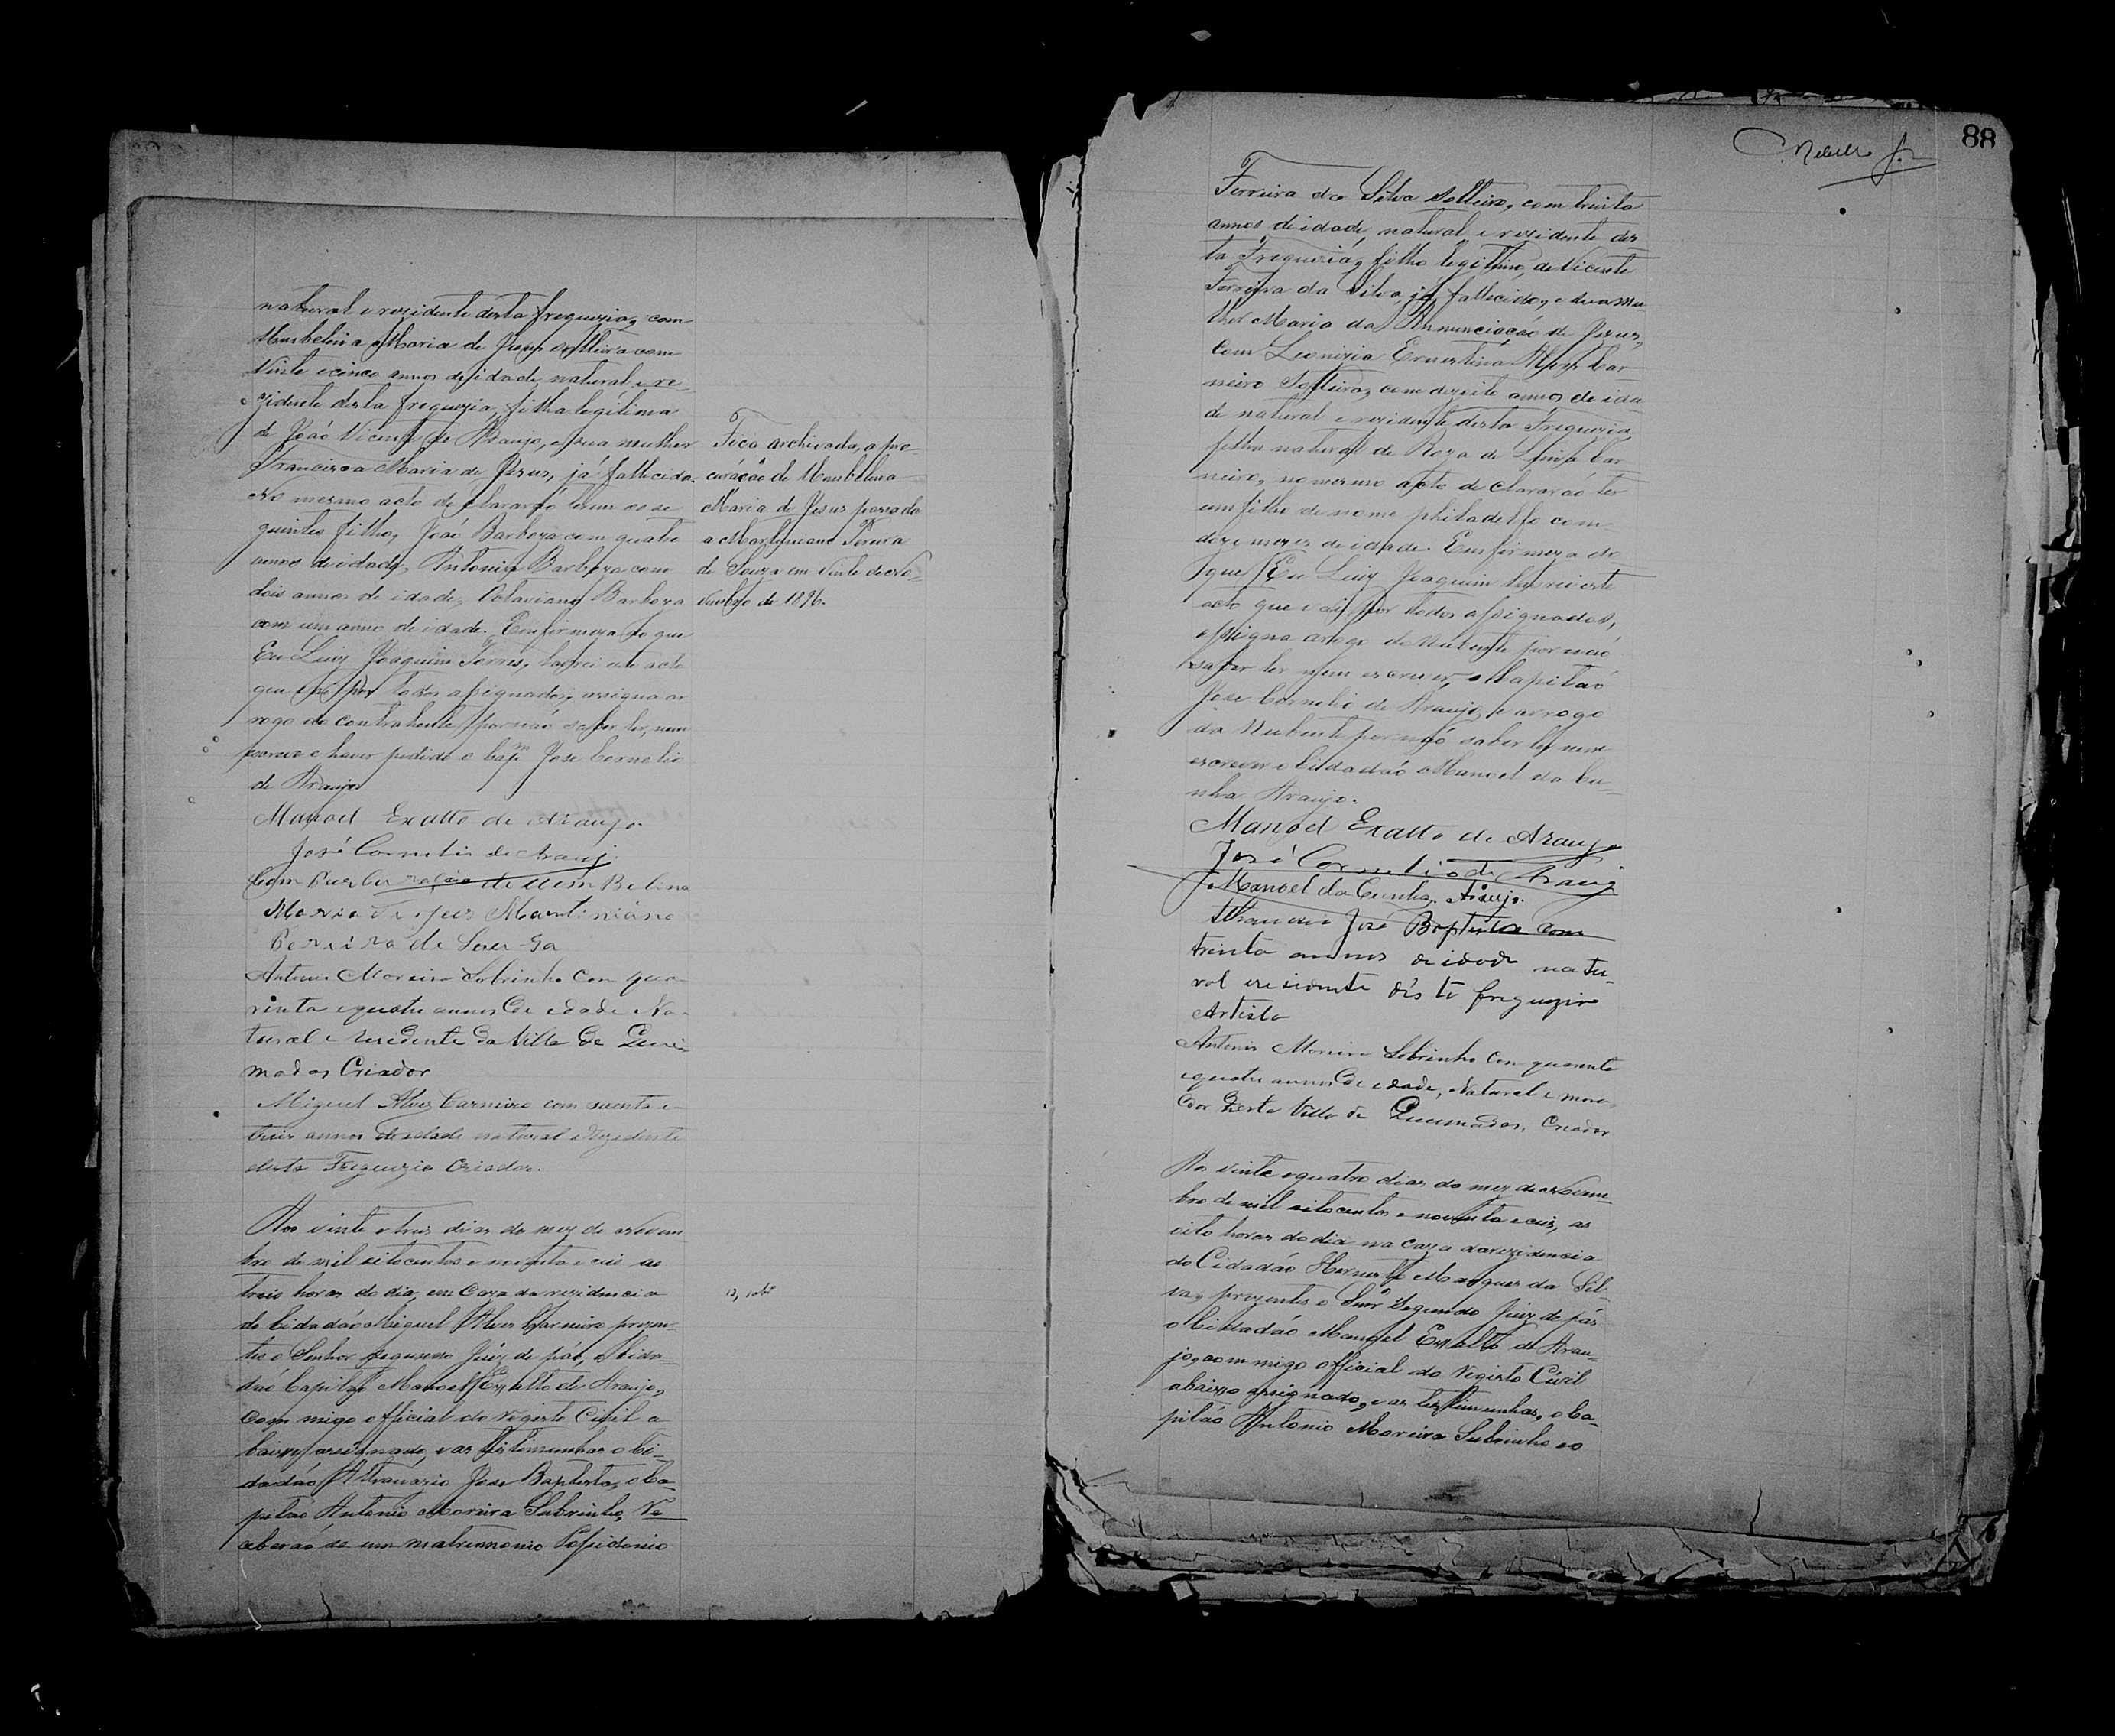 natural e rezidente desta freguezia, com
Umbelina Maria de Jesus solteira com
vinte e cinco annos de idade, natural e re-
zidente desta freguezia, filha legitima
de João Vicente de Araujo, e sua mulher
Francisca Maria de Jesus, já fallecida.
No mesmo acto declararão terem os se-
guintes filhos, João Barboza com quatro
annos de idade, Antonio Barboza com
dois annos de idade, Octaviano Barboza
com um anno de idade. Em firmeza do que
Eu Luiz Joaquim Torres, lavrei este acto
que vai por todos assignados, assigna ar
rogo da contrahente por não saber ler, nem
escrever e haver pedido o Capm José Cornelio
de Araujo
Manoel Exalto de Araujo
José Cornelio de Araujo
Com Percuração de Umbelina
Maria de Jesus Martiniano
Pereira de Souza
Antonio Moreira Sobrinho com qua-
renta e quatro annos de edade Na-
tural e residente da Villa de Quei-
madas Criador
Miguel Alves Carneiro com secenta e
treis annos de edade natural e rezidente
desta Freguezia Criador.
Aos vinte e treis dias do mez de Novem
bro de mil oitocentos e noventa e ceis as
treis horas do dia, em Caza da rezidencia
do Cidadão Miguel Alves Carneiro prezen-
tes o Senhor segundo Juiz de páz, o Cida-
dão Capitão Manoel Exalto de Araujo,
com migo official do registo Civil a
baixo assignado, e as testimunhas o Ci-
dadão Athanazio José Baptista, o Ca-
pitão Antonio Moreira Subrinho, Re
ceberão se em matrimonio Popidonio
Fica archivada, a pro-
curação de Umbelina
Maria de Jesus passada
a Martiniano Pereira
de Souza em vinte de No-
vembro de 1896.
88
Ferreira da Silva solteiro, com trinta
annos de idade, natural e rezidente des
ta Freguezia, filho legitimo, de Vicente
Ferreira da Silva, já fallecido, e sua mu
lher Maria da Annunciação de Jesus,
com Leonizia Ernestina Alves Car
neiro Solteira, com dezoito annos de ida
de natural e rezidente desta Freguezia,
filha natural de Roza de Lima Car
neiro, no mesmo acto declararão ter
um filho de nome Philadelfo com
doze mezes de idade. Em firmeza do
que Eu Luiz Joaquim lavrei este
acto que vai por todos assignados,
assigna arogo do Nubente por não
saber ler nem escrever, o Capitão
José Cornelio de Araujo, e arrogo
da Nubente por não saber ler nem
escrever o Cidadão Manoel da Cu-
nha Araujo.
Manoel Exalto de Araujo
José Cornelio de Araujo
Manoel da Cunha Araujo.
Athanazio José Baptista com
trinta annos de idade natu-
ral e residente désta freguezia
Artista
Antonio Moreira Sobrinho com quarenta
e quatro annos de edade, Natural e mora-
dor desta Villa de Queimadas, Criador
Aos vinte e quatro dias do mez de Novem-
bro de mil oitocentos e noventa e ceis, as
oito horas do dia na caza da rezidencia
do Cidadão Hernesto Marques da Sil-
va, prezentes o Senr Segundo Juiz de páz
o Cidadão Manoel Exalto de Arau-
jo, com migo official do Registo Civil
abaixo assignado, e as testimunhas, o Ca-
pitão Antonio Moreira Subrinho eo